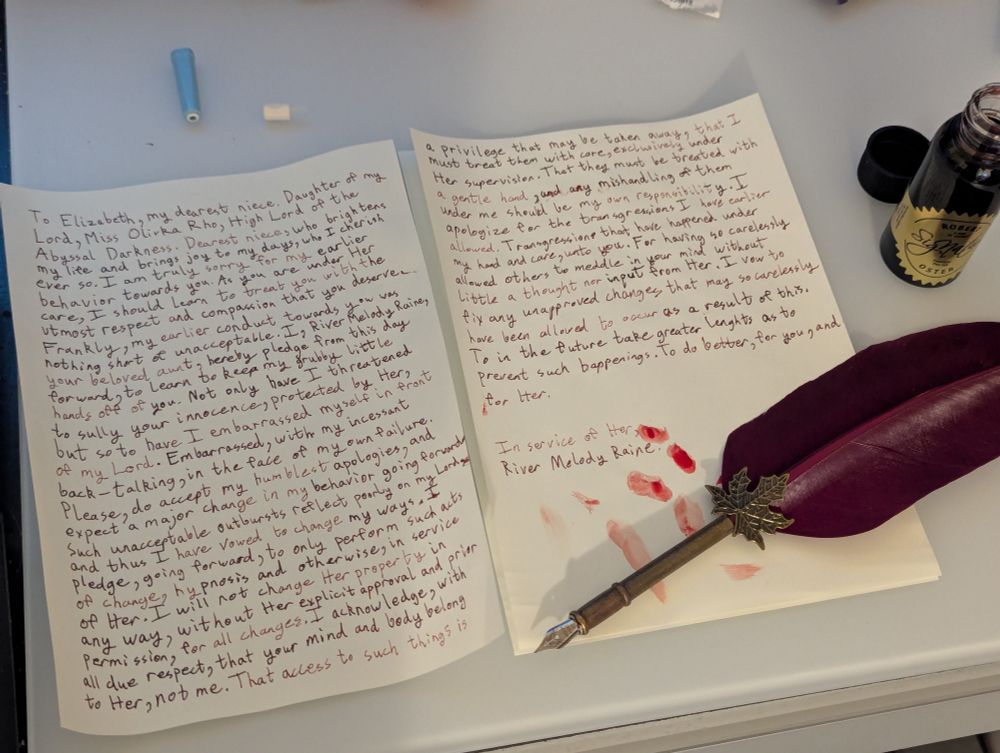 To Elizabeth, my dearest niece. Daughter of my
Lord, Miss Olirka Rho, High Lord of the
Abyssal Darkness. Dearest niece, who brightens
my life and brings joy to my days, who I cherish
ever so. I am truly sorry for my earlier
behavior towards you. As you are under Her
care, I should learn to treat you with the
utmost respect and compassion that you deserve.
Frankly, my earlier conduct towards you was
nothing short of unacceptable. I, River Melody Raine,
your beloved aunt, hereby pledge from this day
forward, to learn to keep my grubby little
hands off of you. Not only have I threatened
to sully your innocence, protected by Her,
but so to have I embarrassed myself in front
of my Lord. Embarrassed, with my incessant
back-talking, in the face of my own failure.
Please, do accept my humblest apologies, and
expect a major change in my behavior going forward.
Such unacceptable outbursts reflect poorly on my Lord,
and thus I have vowed to change my ways. I
pledge, going forward, to only perform such acts
of change, hypnosis and otherwise, in service
of Her. I will not change Her property in
any way, without Her explicit approval and prior
permission, for all changes. I acknowledge, with
all due respect, that your mind and body belong
to Her, not me. That access to such things is
a privilege that may be taken away, that I
must treat them with care, exclusively under
Her supervision. That they must be treated with
a gentle hand, and any mishandling of them
under me should be my own responsibility. I
apologize for the transgressions I have earlier
allowed. Transgressions that have happened under
my hand and care, unto you. For having so carelessly
allowed others to meddle in your mind without
little a thought nor input from Her. I vow to
fix any unapproved changes that may so carelessly
have been allowed to occur as a result of this.
To in the future take greater lenghts as to
prevent such happenings. To do better, for you, and
for Her.
In service of Her,
River Melody Raine.
ROBERT
OSTER